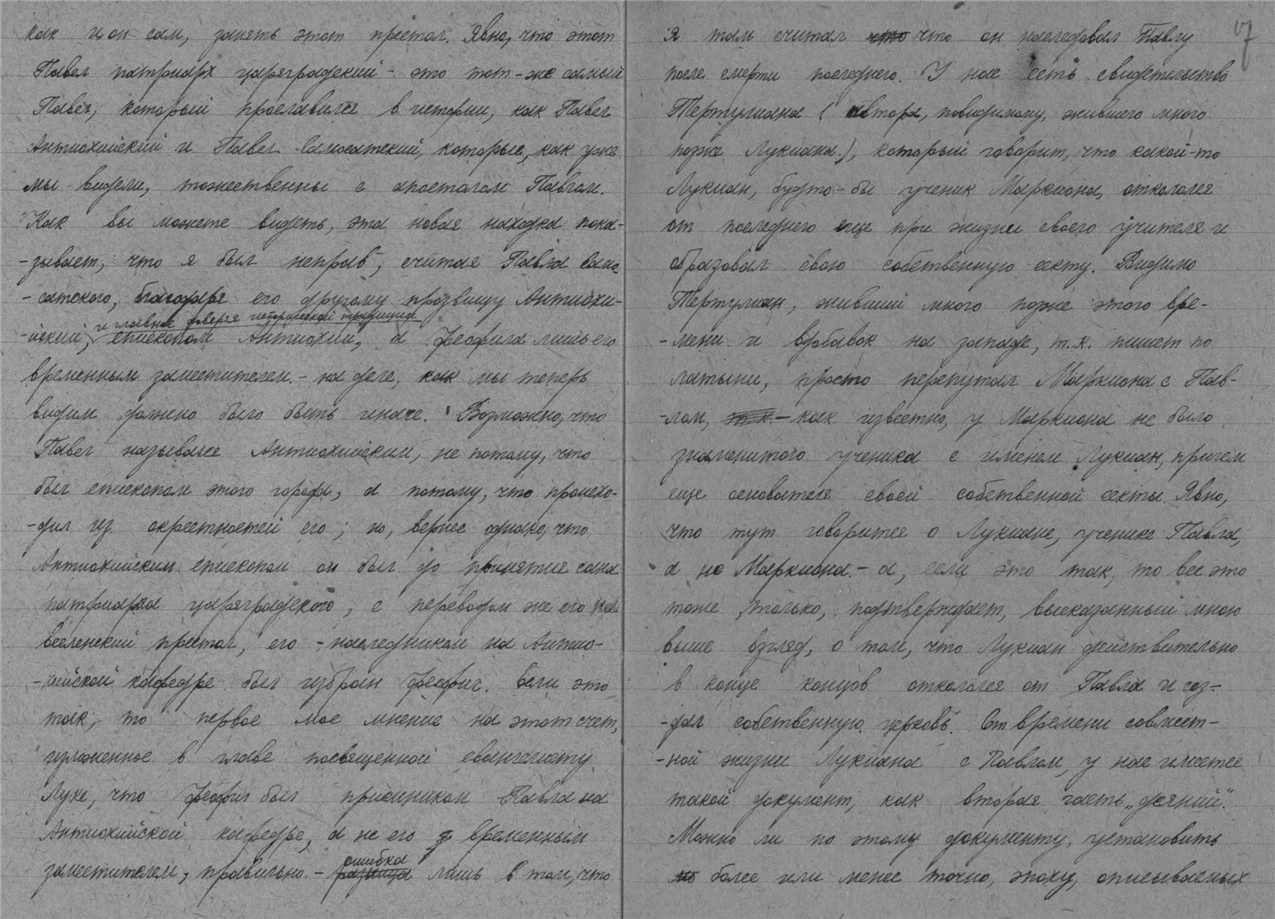 как и он сам, занять этот престол. Явно, что этот
Павел патриарх цареградский - это тот-же самый
Павел, который прославился в истории, как Павел
Антиохийский и Павел Самосатский, которые, как уже
мы видели, тожественны с апостолом Павлом.
Как вы можете видеть, эта новая находка пока-
-зывает, что я был неправ, считая Павла Само
-сатского, благодаря его другому прозвищу Антиохи-
и главное доверяя исторической традиции
-йский, епископом Антиохии, а Феофила лишь его
временным заместителем. - на деле, как мы теперь
видим должно было быть иначе. Возможно, что
Павел назывался Антиохийским, не потому, что
был епископом этого города, а потому, что происхо-
-дил из окрестностей его; но, вернее однако, что
Антиохийским епископом он был до принятия сана
патриарха цареградского, с переводом же его на
вселенский престол, его - наследником на Антио-
-хийской кафедре был избран Феофил. Если это
так, то первое мое мнение на этот счет,
изложенное в главе посвященной евангелисту
Луке, что Феофил был приемником Павла на
Антиохийской кафедре, а не его временным
заместителем, правильно. - ошибка лишь в том, что
17
я там считал что что он наследовал Павлу
после смерти последнего. У нас есть свидетельство
Тертулиана (автора, повидимому, жившего много
позже Лукиана.), который говорит, что какой-то
Лукиан, будто-бы ученик Маркиона, откололся
от последнего еще при жизни своего учителя и
образовал свою собственную секту. Видимо
Тертулиан, живший много позже этого вре-
-мени и вдобавок на западе, т.к. пишет по
латыни, просто перепутал Маркиона с Пав-
-лом, т.к. - как известно, у Маркиона не было
знаменитого ученика с именем Лукиан, причем
еще основателя своей собственной секты. Явно,
что тут говорится о Лукиане, ученике Павла,
а не Маркиона. - а, если это так, то все это
тоже, только, подтверждает, высказанный мною
выше взгляд, о том, что Лукиан действительно
в конце концов откололся от Павла и соз-
-дал собственную церковь. От времени совмест-
-ной жизни Лукиана с Павлом, у нас имеется
такой документ, как вторая часть „деяний".
Можно ли по этому документу, установить
более или менее точно, эпоху, описываемых